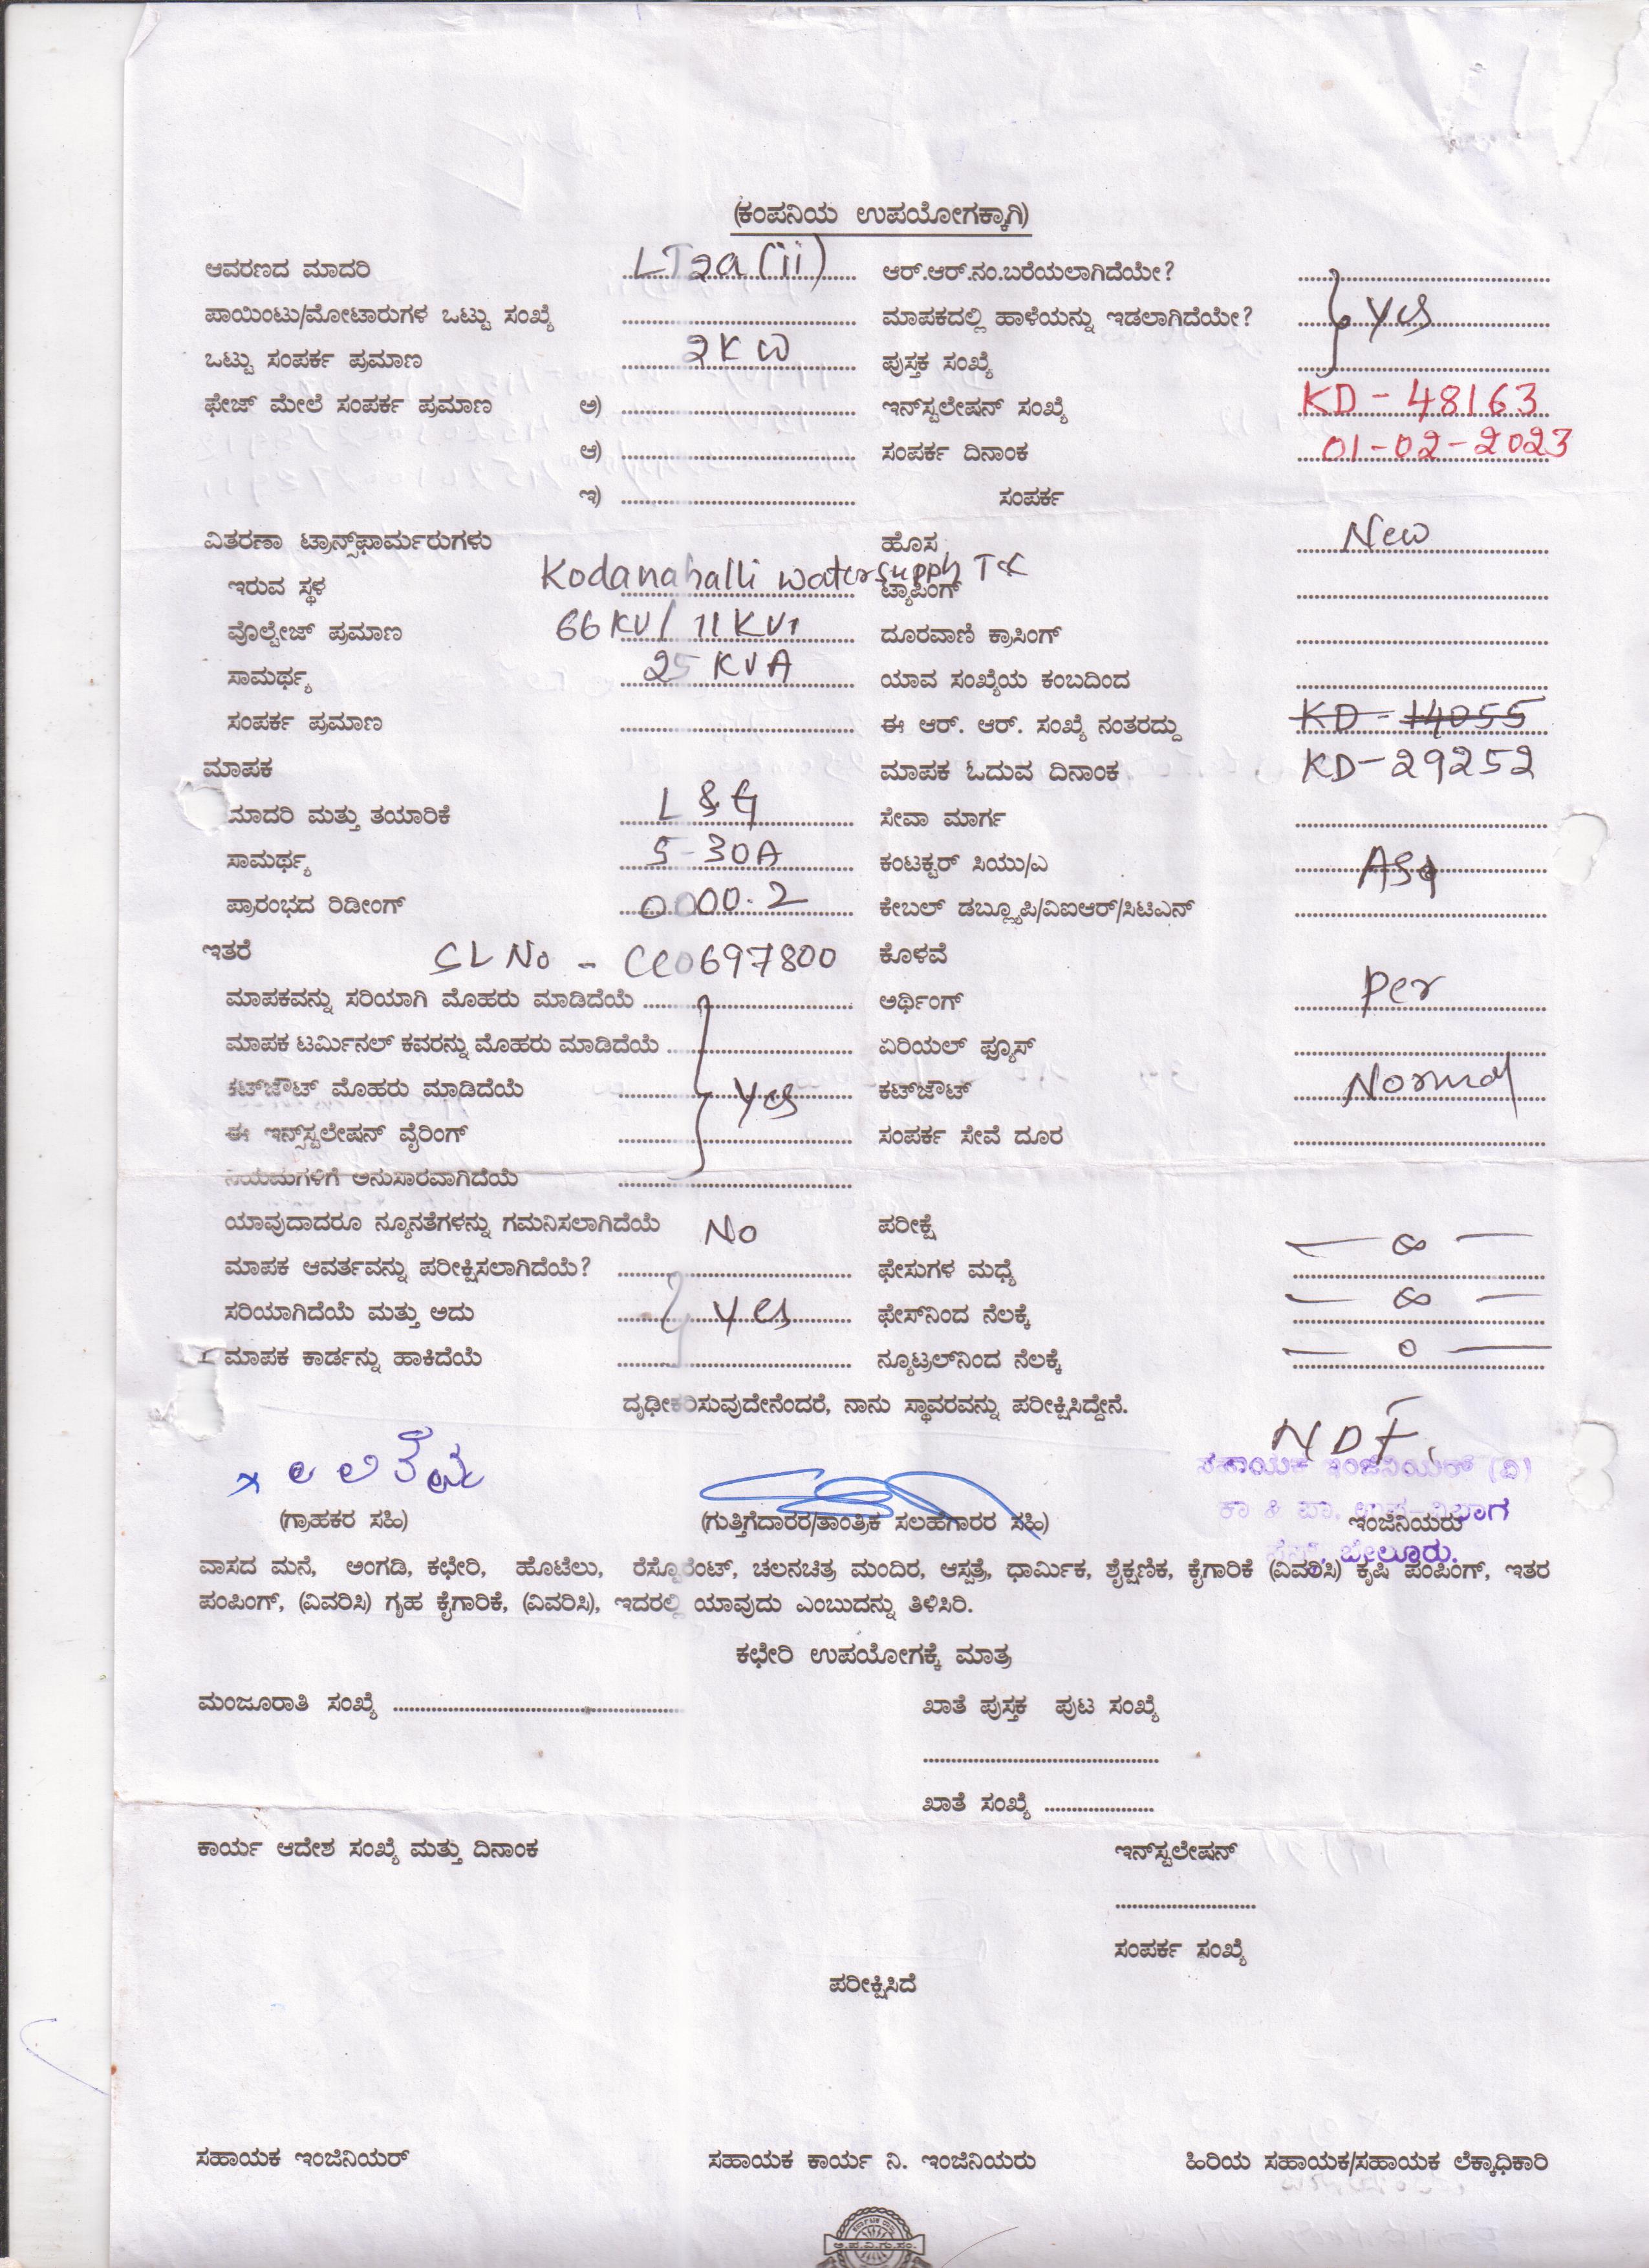 (ಕಂಪನಿಯ ಉಪಯೋಗಕ್ಕಾಗಿ)
ಆವರಣದ ಮಾದರಿ LT2a(ii) ಆರ್.ಆರ್.ನಂ.ಬರೆಯಲಾಗಿದೆಯೇ?
ಪಾಯಿಂಟು/ಮೋಟಾರುಗಳ ಒಟ್ಟು ಸಂಖ್ಯೆ ಮಾಪಕದಲ್ಲಿ ಹಾಳೆಯನ್ನು ಇಡಲಾಗಿದೆಯೇ? Yes
ಒಟ್ಟು ಸಂಪರ್ಕ ಪ್ರಮಾಣ 2KW ಪುಸ್ತಕ ಸಂಖ್ಯೆ
ಫೇಜ್ ಮೇಲೆ ಸಂಪರ್ಕ ಪ್ರಮಾಣ ಅ) ಇನ್‌ಸ್ಟಲೇಷನ್ ಸಂಖ್ಯೆ KD-48163
ಆ) ಸಂಪರ್ಕ ದಿನಾಂಕ 01-02-2023
ಇ) ಸಂಪರ್ಕ
ವಿತರಣಾ ಟ್ರಾನ್ಸ್‌ಫಾರ್ಮರುಗಳು ಹೊಸ New
ಇರುವ ಸ್ಥಳ Kodanahalli water supply TC ಟ್ಯಾಪಿಂಗ್
ವೊಲ್ಟೇಜ್ ಪ್ರಮಾಣ 66KV/11KV ದೂರವಾಣಿ ಕ್ರಾಸಿಂಗ್
ಸಾಮರ್ಥ್ಯ 25 KVA ಯಾವ ಸಂಖ್ಯೆಯ ಕಂಬದಿಂದ
ಸಂಪರ್ಕ ಪ್ರಮಾಣ ಈ ಆರ್. ಆರ್. ಸಂಖ್ಯೆ ನಂತರದ್ದು KD-14055
ಮಾಪಕ ಮಾಪಕ ಓದುವ ದಿನಾಂಕ KD-29252
ಮಾದರಿ ಮತ್ತು ತಯಾರಿಕೆ L&G ಸೇವಾ ಮಾರ್ಗ
ಸಾಮರ್ಥ್ಯ 5-30A ಕಂಟಕ್ಟರ್ ಸಿಯು/ಎ
ಪ್ರಾರಂಭದ ರಿಡೀಂಗ್ 0000.2 ಕೇಬಲ್ ಡಬ್ಲ್ಯೂಪಿ/ವಿಐಆರ್/ಸಿಟಿಎಸ್
ಇತರೆ SL No - CC0697800 ಕೊಳವೆ
ಮಾಪಕವನ್ನು ಸರಿಯಾಗಿ ಮೊಹರು ಮಾಡಿದೆಯೆ ಅರ್ಥಿಂಗ್ Per
ಮಾಪಕ ಟರ್ಮಿನಲ್ ಕವರನ್ನು ಮೊಹರು ಮಾಡಿದೆಯೆ ಏರಿಯಲ್ ಫ್ಯೂಸ್
ಕಟ್‌ಔಟ್ ಮೊಹರು ಮಾಡಿದೆಯೆ Yes ಕಟ್‌ಔಟ್ Normal
ಈ ಇನ್ಸ್‌ಸ್ಟಲೇಷನ್ ವೈರಿಂಗ್ ಸಂಪರ್ಕ ಸೇವೆ ದೂರ
ನಿಯಮಗಳಿಗೆ ಅನುಸಾರವಾಗಿದೆಯೆ
ಯಾವುದಾದರೂ ನ್ಯೂನತೆಗಳನ್ನು ಗಮನಿಸಲಾಗಿದೆಯೆ No ಪರೀಕ್ಷೆ
ಮಾಪಕ ಆವರ್ತವನ್ನು ಪರೀಕ್ಷಿಸಲಾಗಿದೆಯೆ? ಫೇಸುಗಳ ಮಧ್ಯೆ — ∞ —
ಸರಿಯಾಗಿದೆಯೆ ಮತ್ತು ಅದು Yes ಫೇಸ್‌ನಿಂದ ನೆಲಕ್ಕೆ — ∞ —
ಮಾಪಕ ಕಾರ್ಡನ್ನು ಹಾಕಿದೆಯೆ ನ್ಯೂಟ್ರಲ್‌ನಿಂದ ನೆಲಕ್ಕೆ — 0 —
ದೃಢೀಕರಿಸುವುದೇನೆಂದರೆ, ನಾನು ಸ್ಥಾವರವನ್ನು ಪರೀಕ್ಷಿಸಿದ್ದೇನೆ.
NDF
ಸಹಾಯಕ ಇಂಜಿನಿಯರ್ (ವಿ)
ಕಾ & ಪಾ. ಉಪ-ವಿಭಾಗ
(ಗ್ರಾಹಕರ ಸಹಿ) (ಗುತ್ತಿಗೆದಾರರ/ತಾಂತ್ರಿಕ ಸಲಹೆಗಾರರ ಸಹಿ) ಇಂಜಿನಿಯರು
ಬೇಲೂರು.
ವಾಸದ ಮನೆ, ಅಂಗಡಿ, ಕಛೇರಿ, ಹೊಟೆಲು, ರೆಸ್ಟೊರೆಂಟ್, ಚಲನಚಿತ್ರ ಮಂದಿರ, ಆಸ್ಪತ್ರೆ, ಧಾರ್ಮಿಕ, ಶೈಕ್ಷಣಿಕ, ಕೈಗಾರಿಕೆ (ವಿವರಿಸಿ) ಕೃಷಿ ಪಂಪಿಂಗ್, ಇತರ
ಪಂಪಿಂಗ್, (ವಿವರಿಸಿ) ಗೃಹ ಕೈಗಾರಿಕೆ, (ವಿವರಿಸಿ), ಇದರಲ್ಲಿ ಯಾವುದು ಎಂಬುದನ್ನು ತಿಳಿಸಿರಿ.
ಕಛೇರಿ ಉಪಯೋಗಕ್ಕೆ ಮಾತ್ರ
ಮಂಜೂರಾತಿ ಸಂಖ್ಯೆ ಖಾತೆ ಪುಸ್ತಕ ಪುಟ ಸಂಖ್ಯೆ
ಖಾತೆ ಸಂಖ್ಯೆ
ಕಾರ್ಯ ಆದೇಶ ಸಂಖ್ಯೆ ಮತ್ತು ದಿನಾಂಕ ಇನ್‌ಸ್ಟಲೇಷನ್
ಸಂಪರ್ಕ ಸಂಖ್ಯೆ
ಪರೀಕ್ಷಿಸಿದೆ
ಸಹಾಯಕ ಇಂಜಿನಿಯರ್ ಸಹಾಯಕ ಕಾರ್ಯ ನಿ. ಇಂಜಿನಿಯರು ಹಿರಿಯ ಸಹಾಯಕ/ಸಹಾಯಕ ಲೆಕ್ಕಾಧಿಕಾರಿ